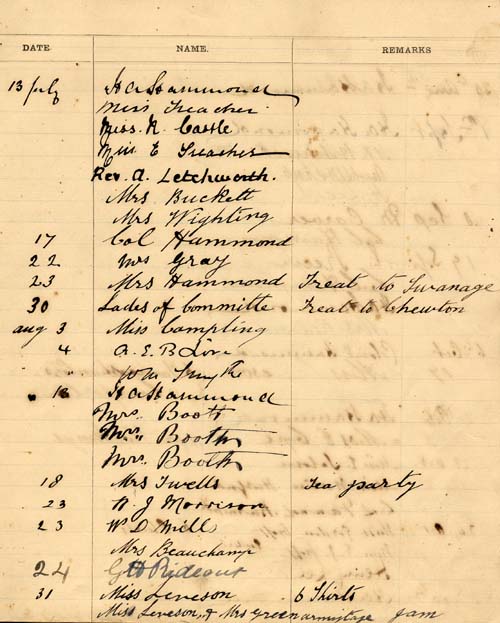 DATE. NAME. REMARKS
13 July H A Hammond
Miss Treacher
Miss. A. Castle
Miss E Treacher
Rev. A. Letchworth.
Mrs Buckett
Mrs Wighting
17 Col Hammond
22 Mrs Gray
23 Mrs Hammond Treat to Swanage
30 Ladies of Committe Treat to Chewton
Aug 3 Miss Campling
4 A. E. B Love
" Wm Smythe
" 13 H A Hammond
Mrs. Booth
Mrs. Booth
Mrs. Booth
18 Mrs Twells Tea party
23 A. J Morrison
23 W D Mills
Mrs Beauchamp
24 G H Rideout
31 Miss Leveson 6 Shirts
Miss Leveson, & Mrs Green armitage Jam